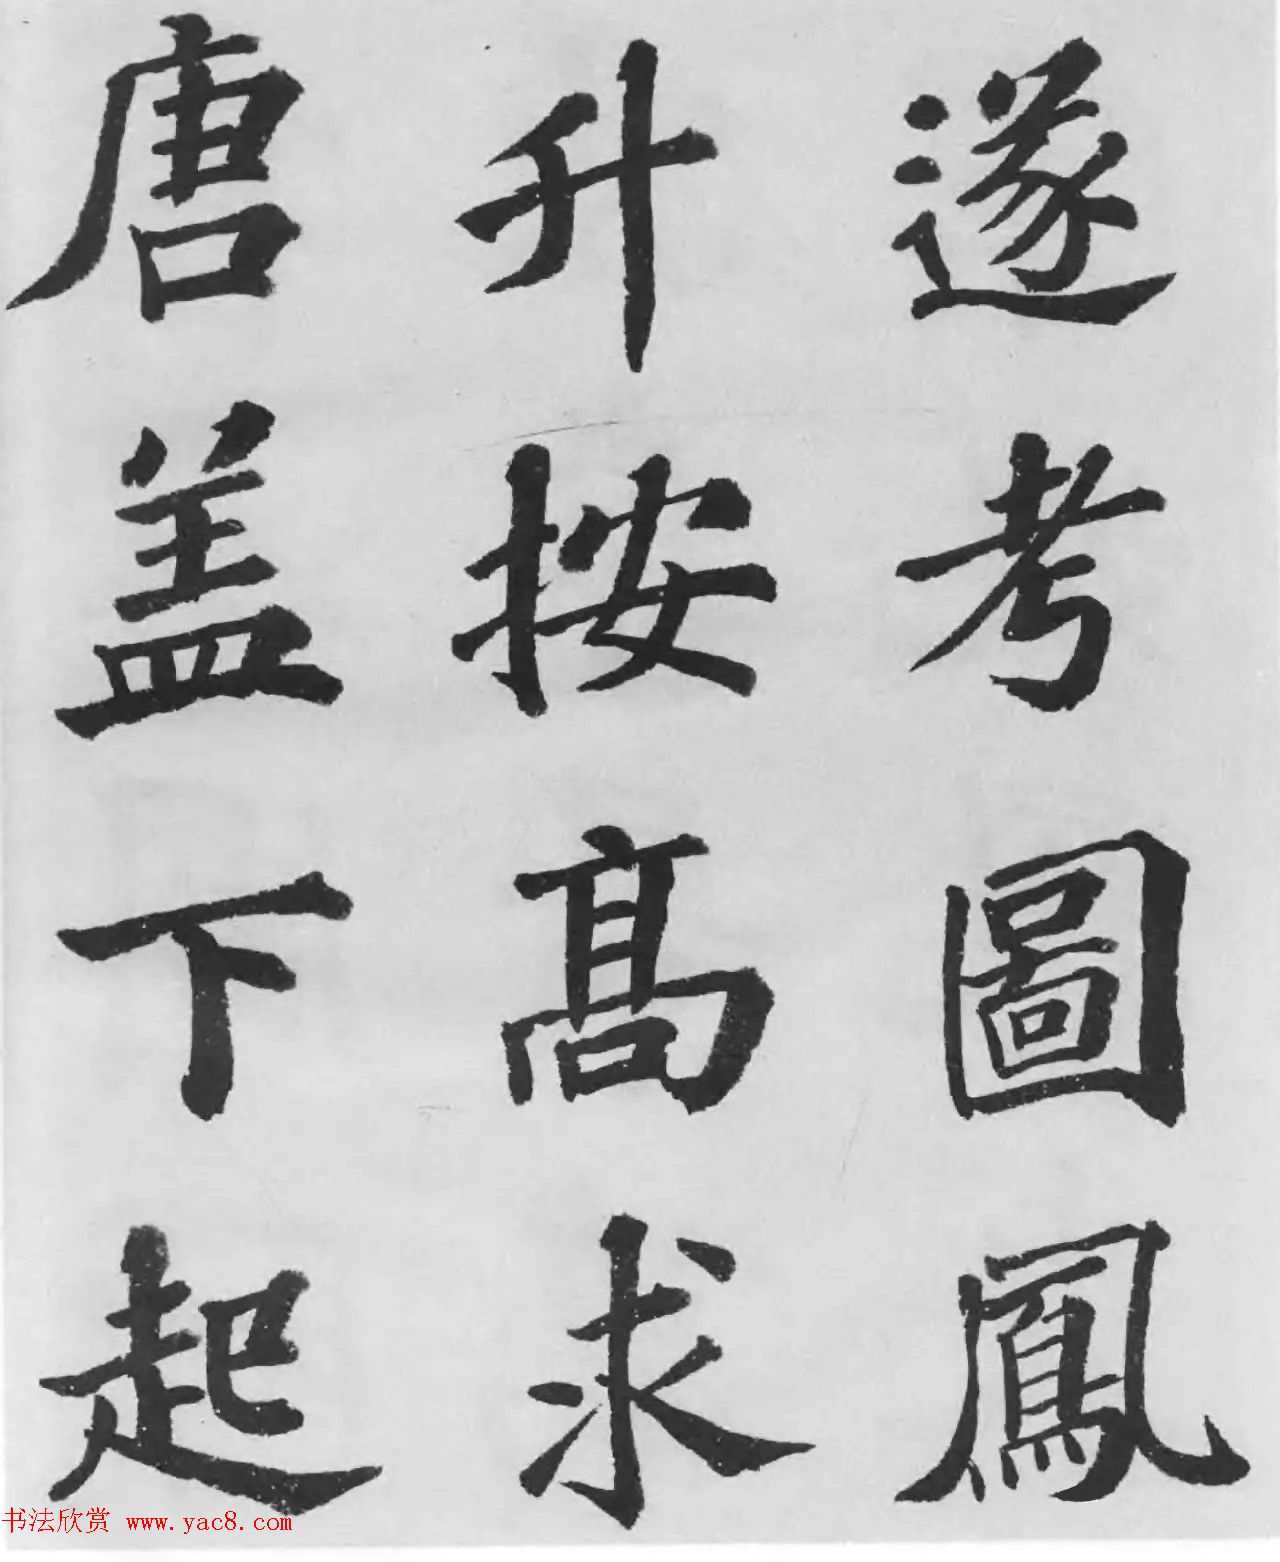 遂考圖鳳
升按高求
唐盖下起
书法欣赏 www.yac8.com